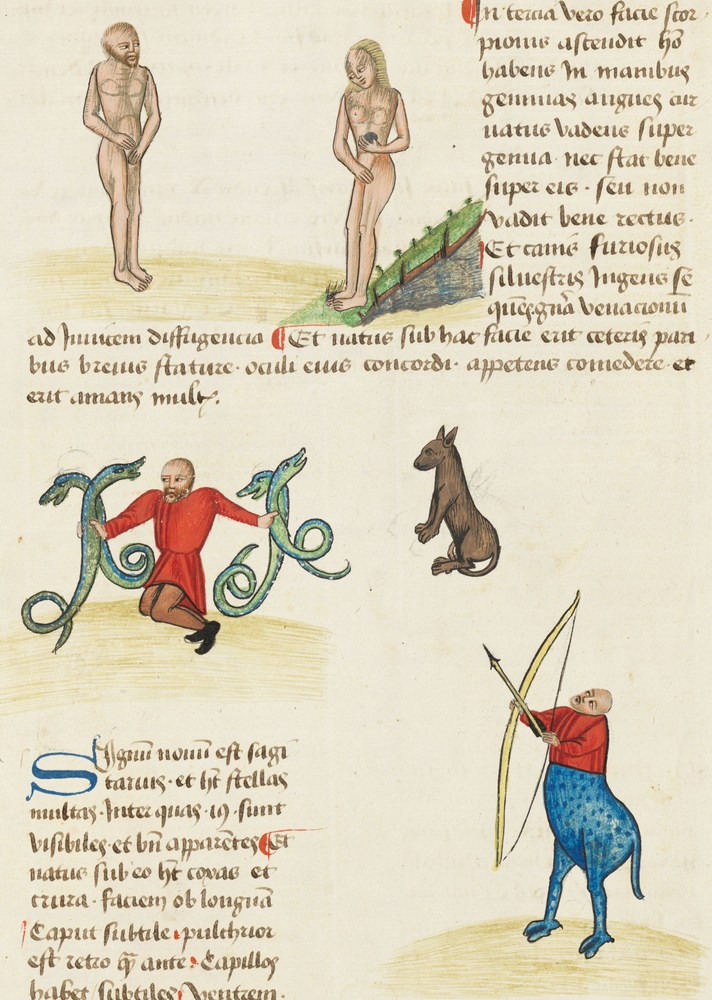 In tercia vero facie scor
pionis ascendit ho
habens in manibus
geminas angues cur
uatus vadens super
genua· nec stat bene
super eis· seu non
vadit bene rectus·
Et canis furiosus
siluestris Ingens se
venacionu
ad Inuicem diffugencia Et natus sub hac facie erit ceteris pari
bus breuis stature· oculi eius concordi· appetens comedere· et
erit amans mult
Signu nonu est sagi
tarius· et ht stellas
multas· Inter quas ·19· sunt
visibiles· et bn apparetes Et
natus sub eo ht coxas et
crura· faciem oblongua
Caput subtile· pulchrior
est retro q ante· Capillos
habet subtiles· Ventrem·